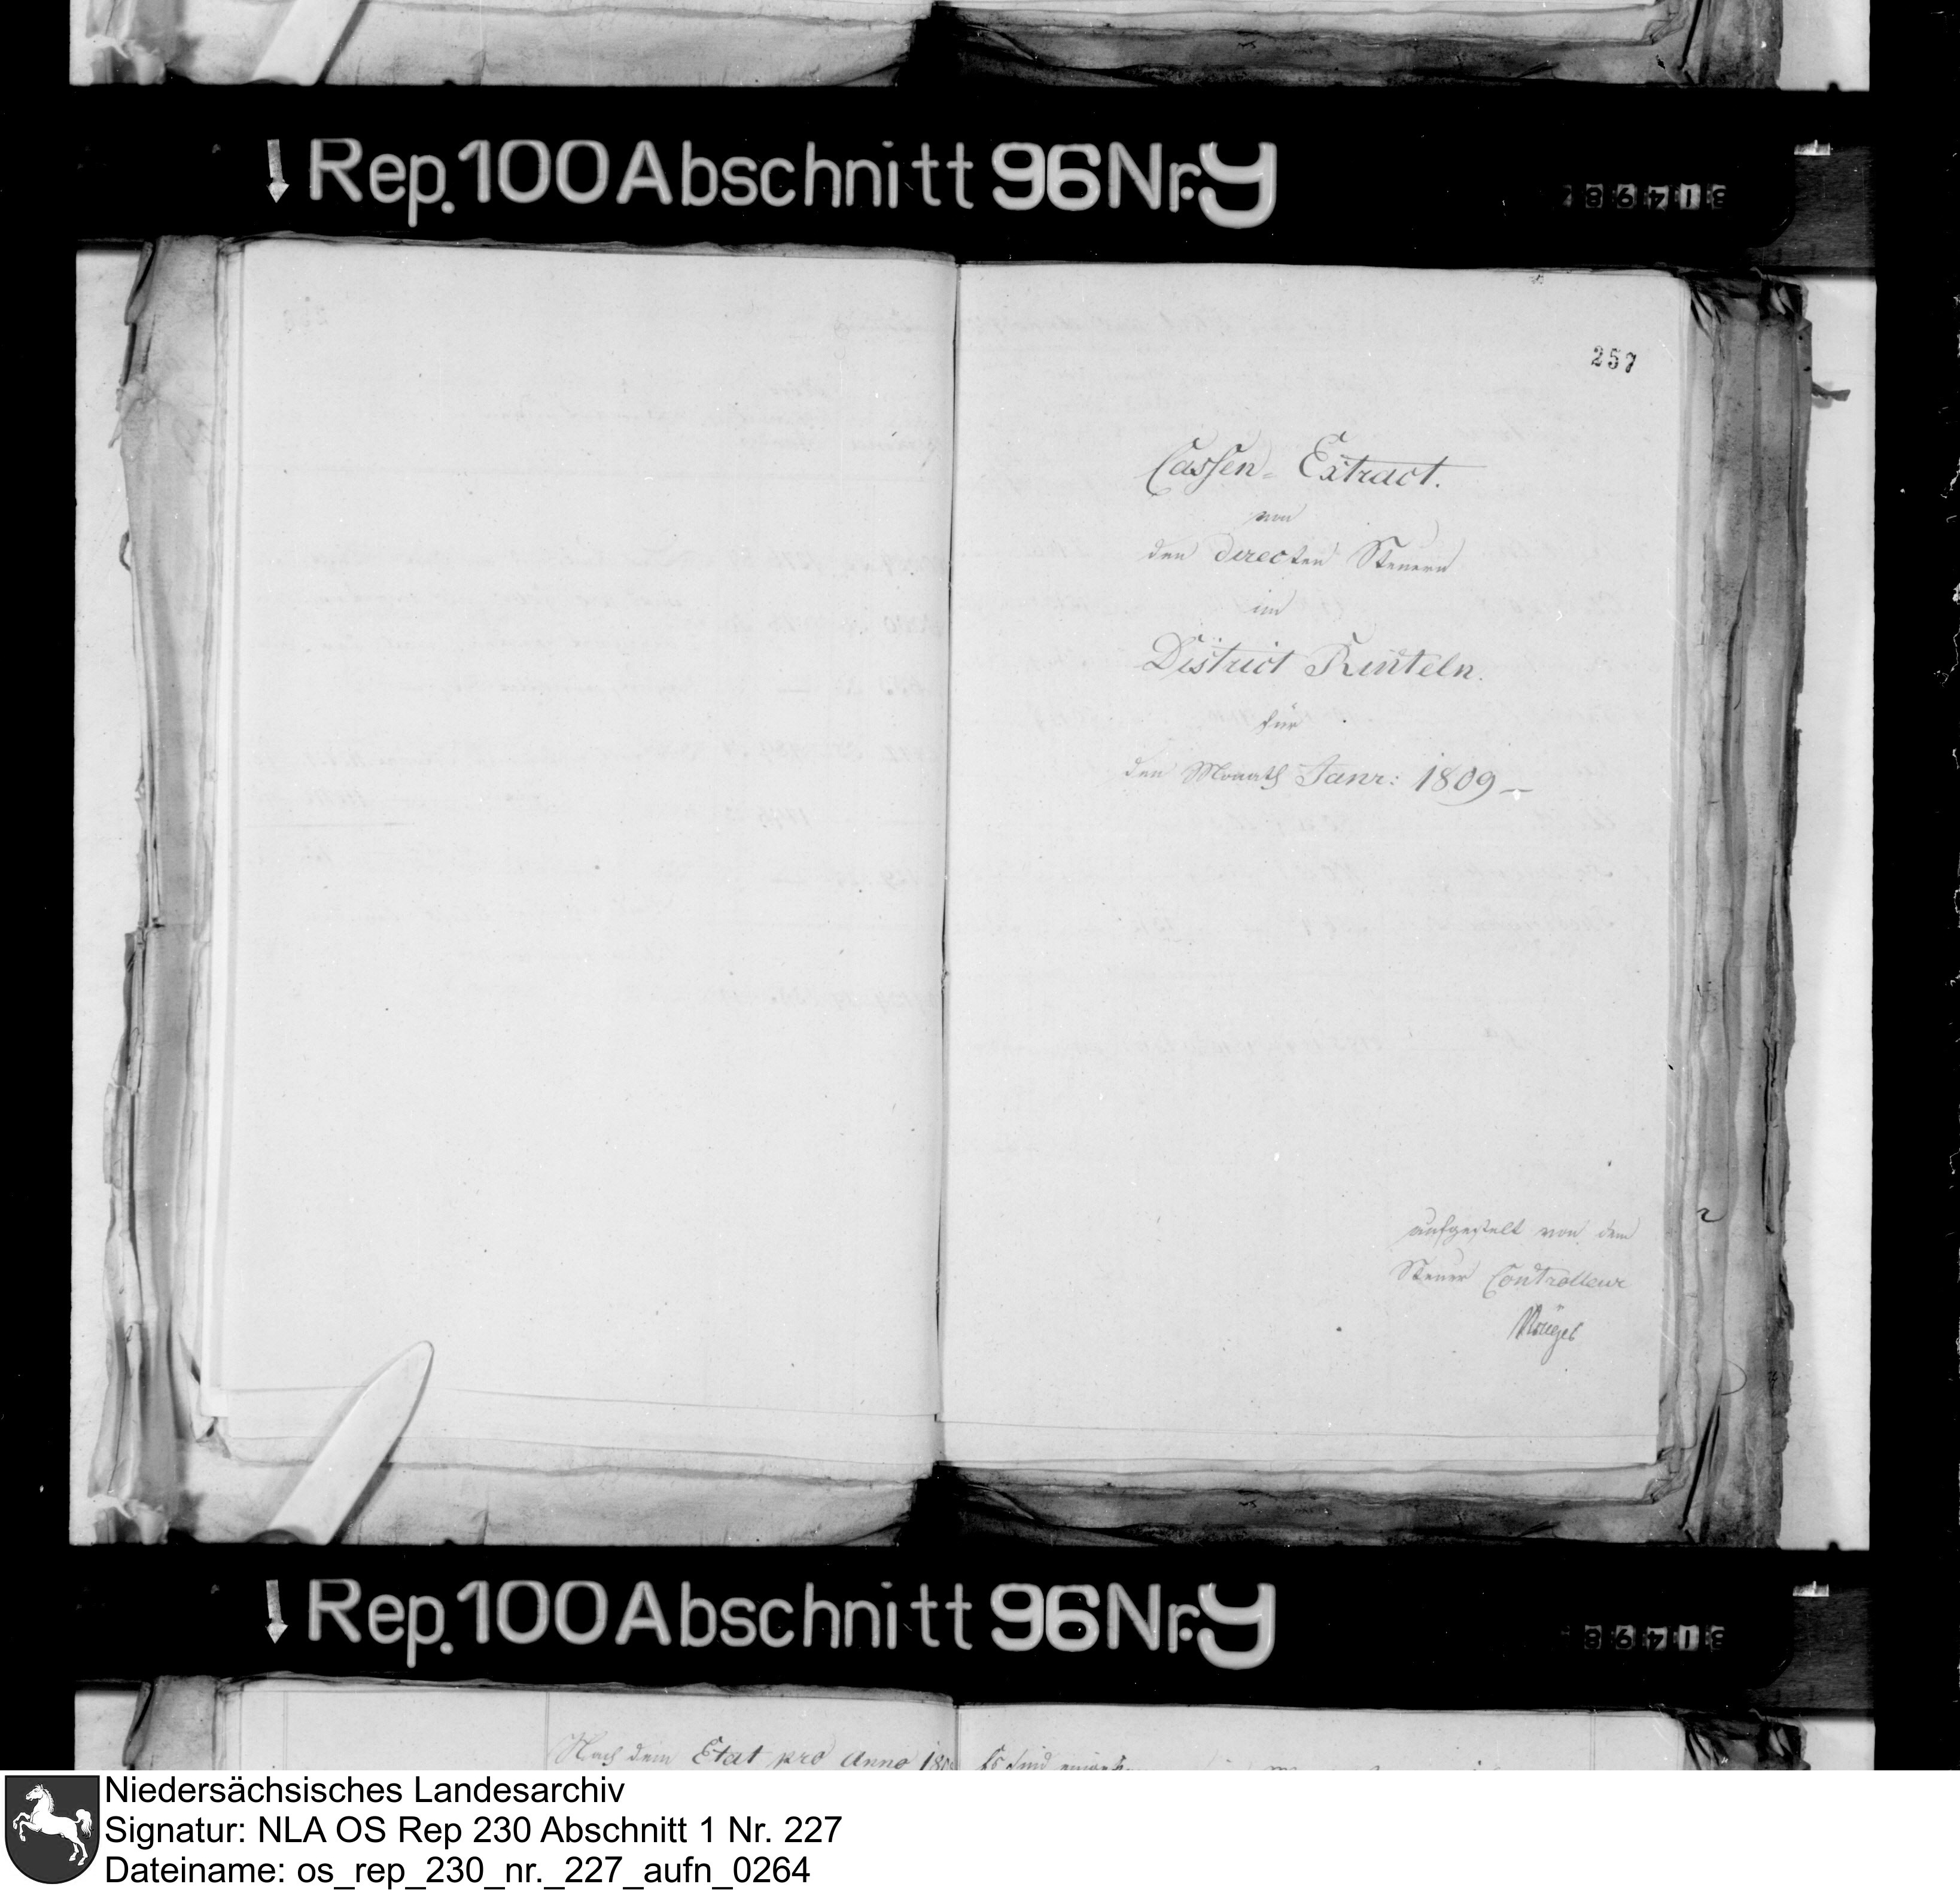 Rep. 100 Abschnitt 96 Nr. 9
257
Cassen-Extract.
von
den directen Steuern
im
District Rinteln.
für
den Monath Janr: 1809
aufgestelt von dem
Steuer Controlleur
Rep. 100 Abschnitt 96 Nr. 9
Nach dem Etat pro Anno
Es sind
Niedersächsisches Landesarchiv
Signatur: NLA OS Rep 230 Abschnitt 1 Nr. 227
Dateiname: os_rep_230_nr._227_aufn_0264